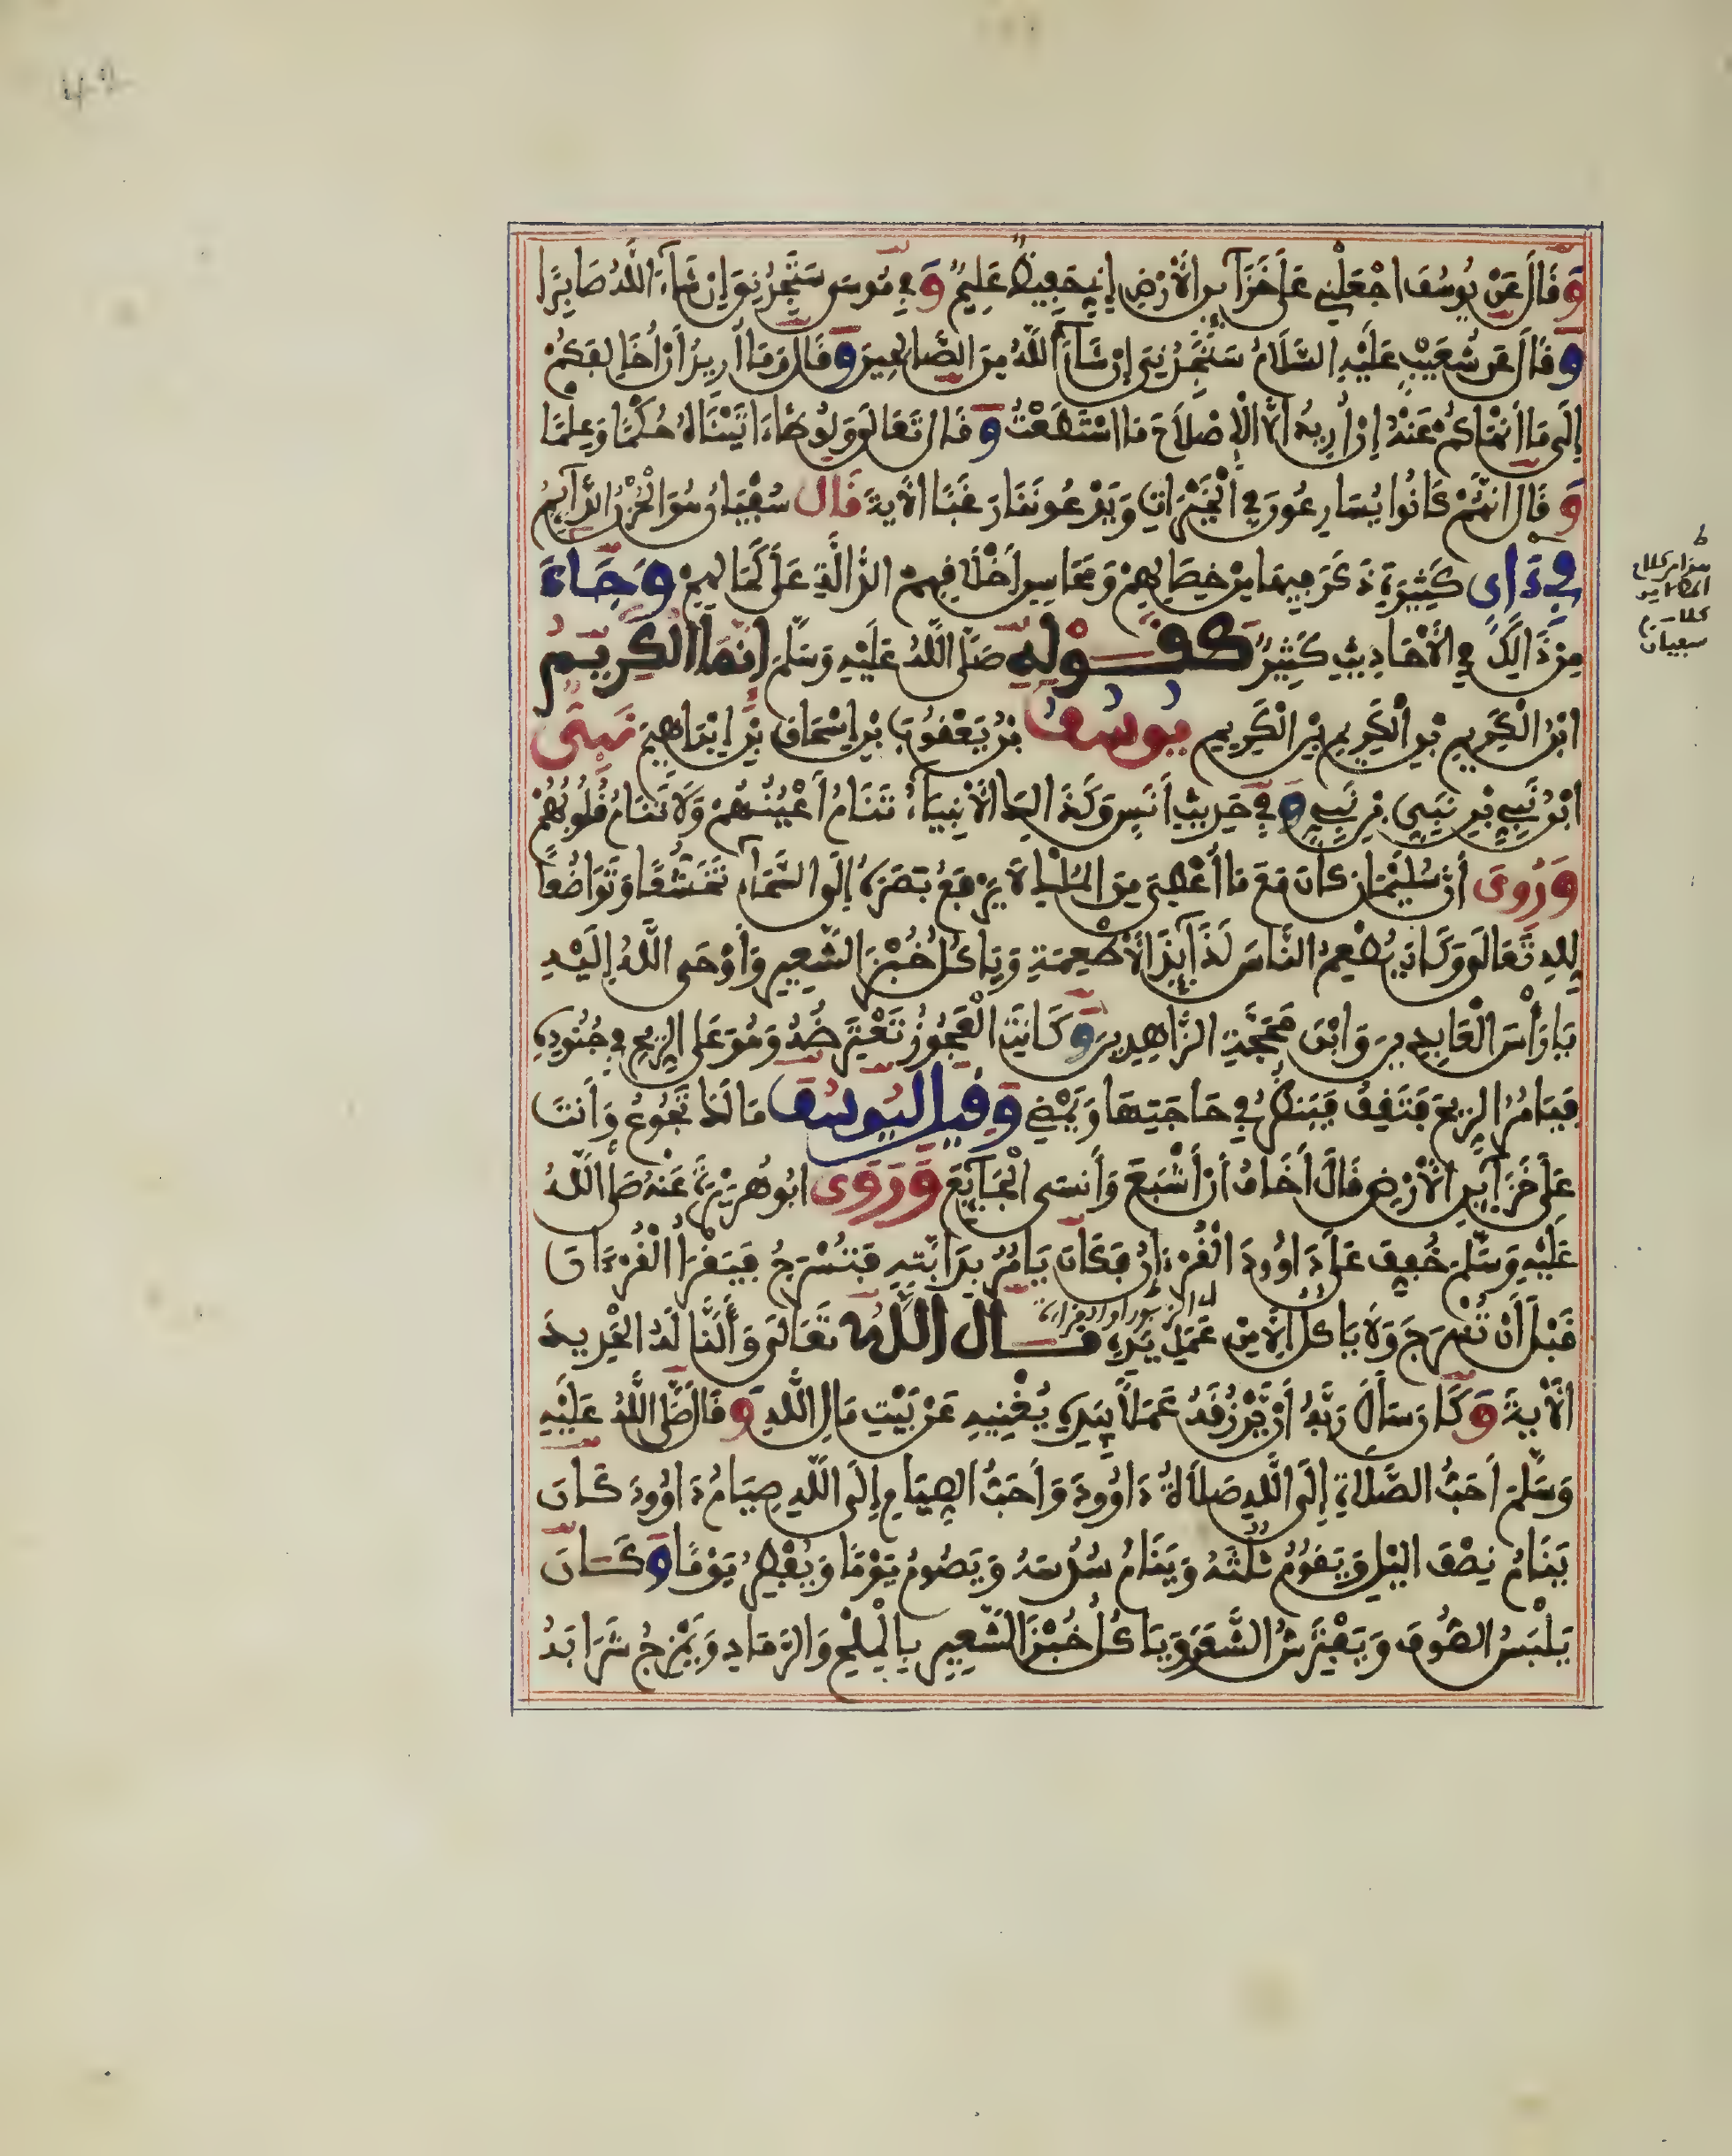 وَقَالَ عَنْ يُوسُفَ اجْعَلْنِي عَلَى خَزَآئِنِ الْأَرْضِ إِنِّي حَفِيظٌ عَلِيمٌ وَفِي مُوسَى سَتَجِدُنِي إِن شَآءَ اللَّهُ صَابِرًا
وَقَالَ عَن شُعَيْبٍ عَلَيْهِ السَّلَامُ سَتَجِدُنِي إِن شَآءَ اللَّهُ مِنَ الصَّالِحِينَ وَقَالَ وَمَا أُرِيدُ أَنْ أُخَالِفَكُمْ
إِلَى مَا أَنْهَاكُمْ عَنْهُ إِنْ أُرِيدُ إِلَّا الْإِصْلَاحَ مَا اسْتَطَعْتُ وَقَالَ تَعَالَى وَلُوطًا ءَاتَيْنَاهُ حُكْمًا وَعِلْمًا
وَقَالَ إِنَّهُمْ كَانُوا يُسَارِعُونَ فِي الْخَيْرَاتِ وَيَدْعُونَنَا رَغَبًا الْآيَةَ قَالَ سُفْيَانُ هُوَ الْحُزْنُ الدَّآئِمُ
فِي ءَايٍ كَثِيرَةٍ ذَكَرَ فِيهَا مِنْ خِصَالِهِمْ وَمَحَاسِنِ أَخْلَاقِهِمْ الدَّالَّةِ عَلَى كَمَالِهِمْ وَجَاءَ
مِنْ ذَالِكَ فِي الْأَحَادِيثِ كَثِيرٌ كَقَوْلِهِ صَلَّى اللَّهُ عَلَيْهِ وَسَلَّمَ إِنَّمَا الْكَرِيمُ
ابْنُ الْكَرِيمِ بْنِ الْكَرِيمِ بْنِ الْكَرِيمِ يُوسُفُ بْنُ يَعْقُوبَ بْنِ إِسْحَاقَ بْنِ إِبْرَاهِيمَ نَبِيٌّ
ابْنُ نَبِيٍّ بْنِ نَبِيٍّ بْنِ نَبِيٍّ وَفِي حَدِيثِ أَنَسٍ وَكَذَالِكَ الْأَنْبِيَاءُ تَنَامُ أَعْيُنُهُمْ وَلَا تَنَامُ قُلُوبُهُمْ
وَرُوِيَ أَنَّ سُلَيْمَانَ كَانَ مَعَ مَا أُعْطِيَ مِنَ الْمُلْكِ لَا يَرْفَعُ بَصَرَهُ إِلَى السَّمَآءِ تَخَشُّعًا وَتَوَاضُعًا
لِلَّهِ تَعَالَى وَكَانَ يُطْعِمُ النَّاسَ لَذَآئِذَ الْأَطْعِمَةِ وَيَاكُلُ خُبْزَ الشَّعِيرِ وَأَوْحَى اللَّهُ إِلَيْهِ
يَا رَأْسَ الْعَابِدِينَ وَابْنَ مَحَجَّةِ الزَّاهِدِينَ وَكَانَتِ الْعَجُوزُ تَعْتَرِضُهُ وَهُوَ عَلَى الرِّيحِ فِي جُنُودِهِ
فَيَامُرُ الرِّيحَ فَتَقِفُ فَيَنْظُرُ فِي حَاجَتِهَا وَيَمْضِي وَقِيلَ لِيُوسُفَ مَا لَكَ تَجُوعُ وَأَنْتَ
عَلَى خَزَآئِنِ الْأَرْضِ قَالَ أَخَافُ أَنْ أَشْبَعَ وَأَنْسَى الْجَآئِعَ وَرَوَى أَبُو هُرَيْرَةَ عَنْهُ صَلَّى اللَّهُ
عَلَيْهِ وَسَلَّمَ خُفِّفَ عَلَى دَاوُودَ الْقُرْءَانُ فَكَانَ يَامُرُ بِدَابَّتِهِ فَتُسْرَجُ فَيَقْرَأُ الْقُرْءَانَ
قَبْلَ أَنْ تُسْرَجَ وَلَا يَاكُلُ إِلَّا مِنْ عَمَلِ يَدِهِ قَالَ اللَّهُ تَعَالَى وَأَلَنَّا لَهُ الْحَدِيدَ
الْآيَةَ وَكَانَ سَأَلَ رَبَّهُ أَنْ يَرْزُقَهُ عَمَلًا بِيَدِهِ يُغْنِيهِ عَنْ بَيْتِ مَالِ اللَّهِ وَقَالَ صَلَّى اللَّهُ عَلَيْهِ
وَسَلَّمَ أَحَبُّ الصَّلَاةِ إِلَى اللَّهِ صَلَاةُ دَاوُودَ وَأَحَبُّ الصِّيَامِ إِلَى اللَّهِ صِيَامُ دَاوُودَ كَانَ
يَنَامُ نِصْفَ اللَّيْلِ وَيَقُومُ ثُلُثَهُ وَيَنَامُ سُدُسَهُ وَيَصُومُ يَوْمًا وَيُفْطِرُ يَوْمًا وَكَانَ
يَلْبَسُ الصُّوفَ وَيَفْتَرِشُ الشَّعَرَ وَيَاكُلُ خُبْزَ الشَّعِيرِ بِالْمِلْحِ وَالرَّمَادِ وَيَمْزُجُ شَرَابَهُ